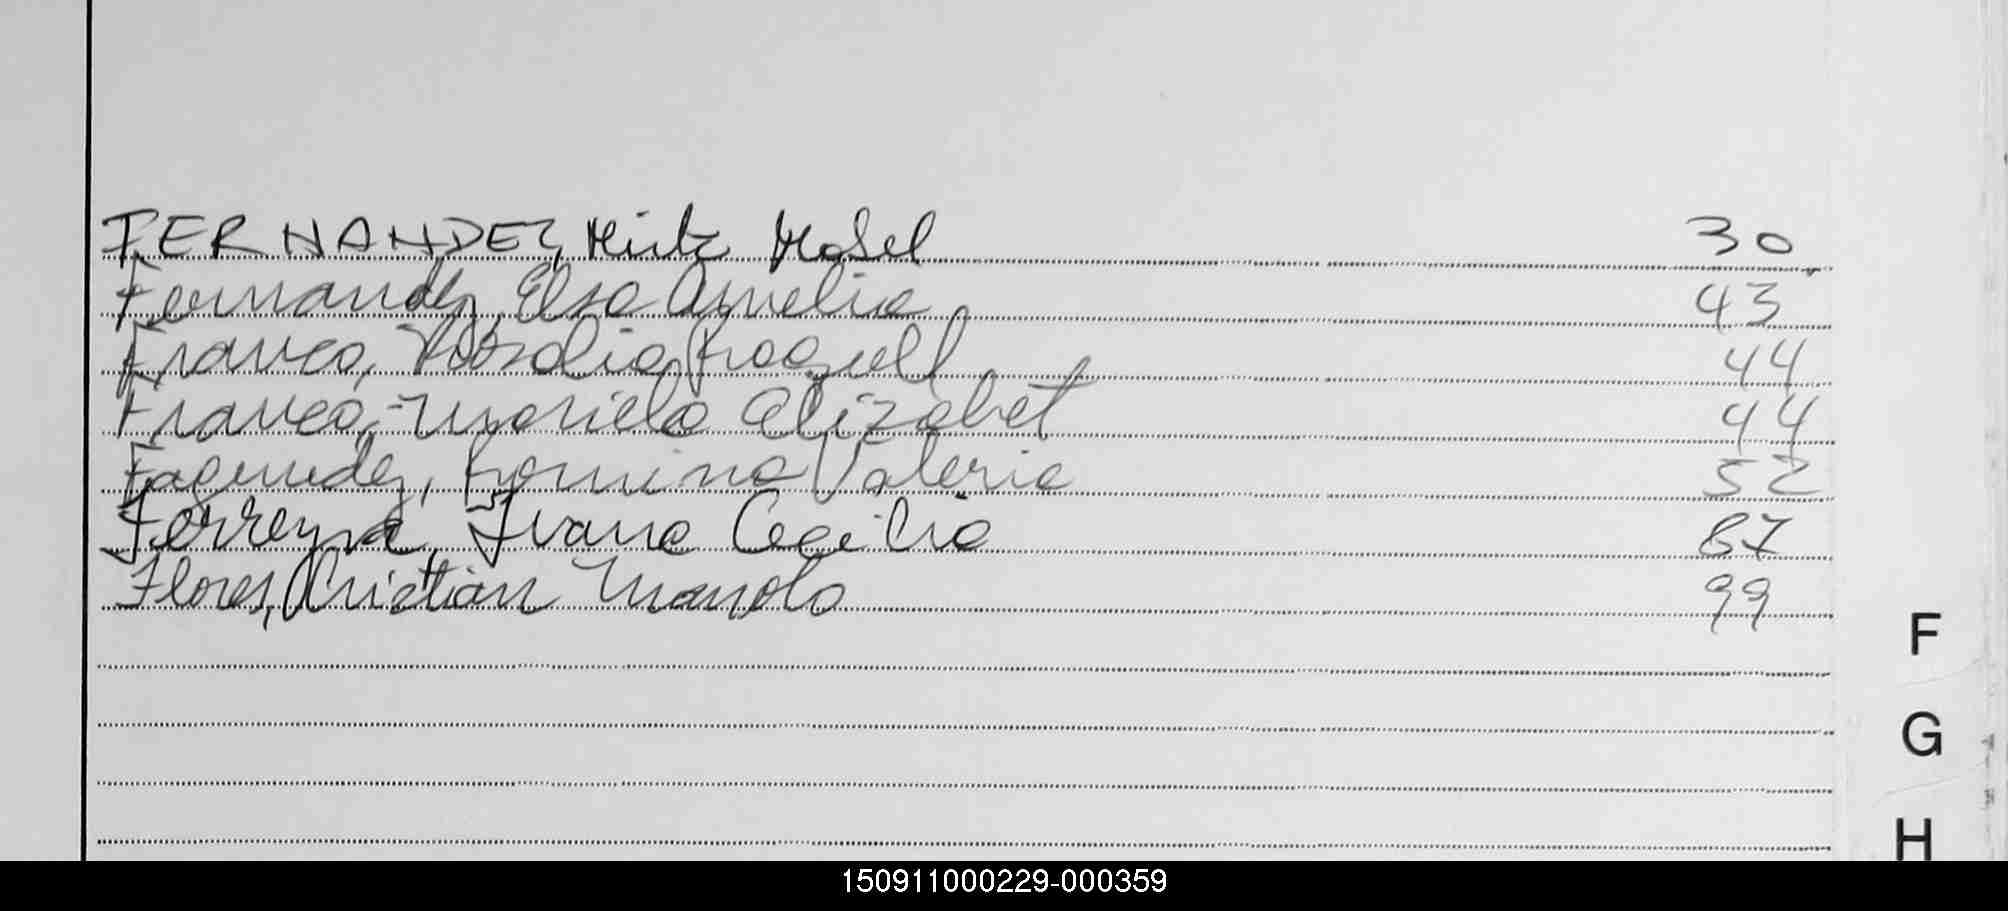 FERNANDEZ, Mirta Mabel 30
Fernandez, Elsa Amelia 43
Franco, Rosalia Raquel 44
Franco, Mariela Elizabet 44
Fagundez, Romina Valeria 52
Ferreyra, Ivana Cecilia 87
Flores, Cristian Manolo 99
F
G
H
150911000229-000359